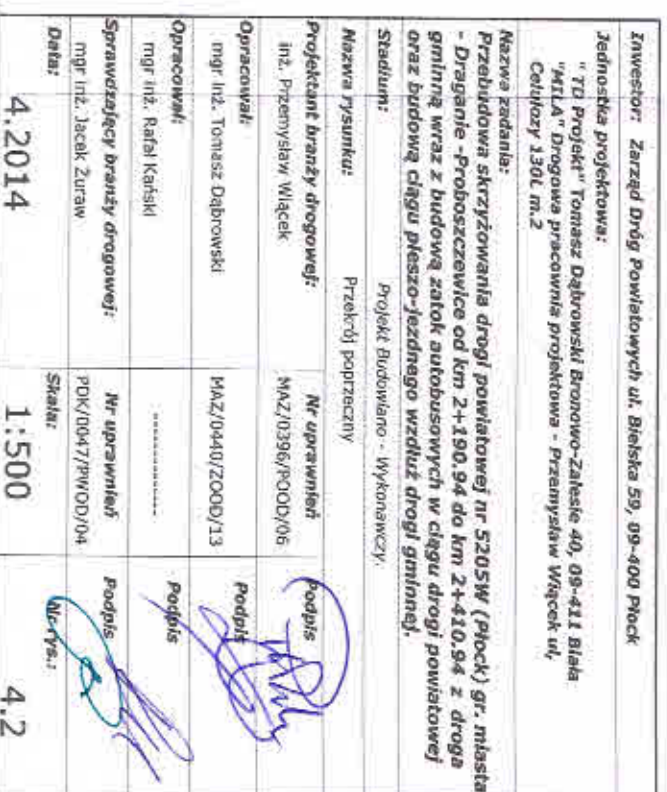 Inwestor: Zarząd Dróg Powiatowych ul. Bielska 59, 09-400 Płock
Jednostka projektowa:
" TD Projekt" Tomasz Dąbrowski Bronowo-Zalesie 40, 09-411 Biała
"MILA" Drogowa pracownia projektowa - Przemysław Wiącek ul,
Celulozy 130L m.2
Nazwa zadania:
Przebudowa skrzyżowania drogi powiatowej nr 5205W (Płock) gr. miasta
- Draganie -Proboszczewice od km 2+190.94 do km 2+410.94 z droga
gminną wraz z budową zatok autobusowych w ciągu drogi powiatowej
oraz budową ciągu pieszo-jezdnego wzdłuż drogi gminnej.
Stadium: Projekt Budowlano - Wykonawczy.
Nazwa rysunku: Przekrój poprzeczny
Projektant branży drogowej: Nr uprawnień Podpis
inż. Przemysław Wiącek MAZ/0396/POOD/06
Opracował: Podpis
mgr inż. Tomasz Dąbrowski MAZ/0440/ZOOD/13
Opracował: Podpis
mgr inż. Rafał Kański -------------
Sprawdzający branży drogowej: Nr uprawnień Podpis
mgr inż. Jacek Żuraw PDK/0047/PWOD/04
Data: Skala: Nr rys.:
4.2014 1:500 4.2